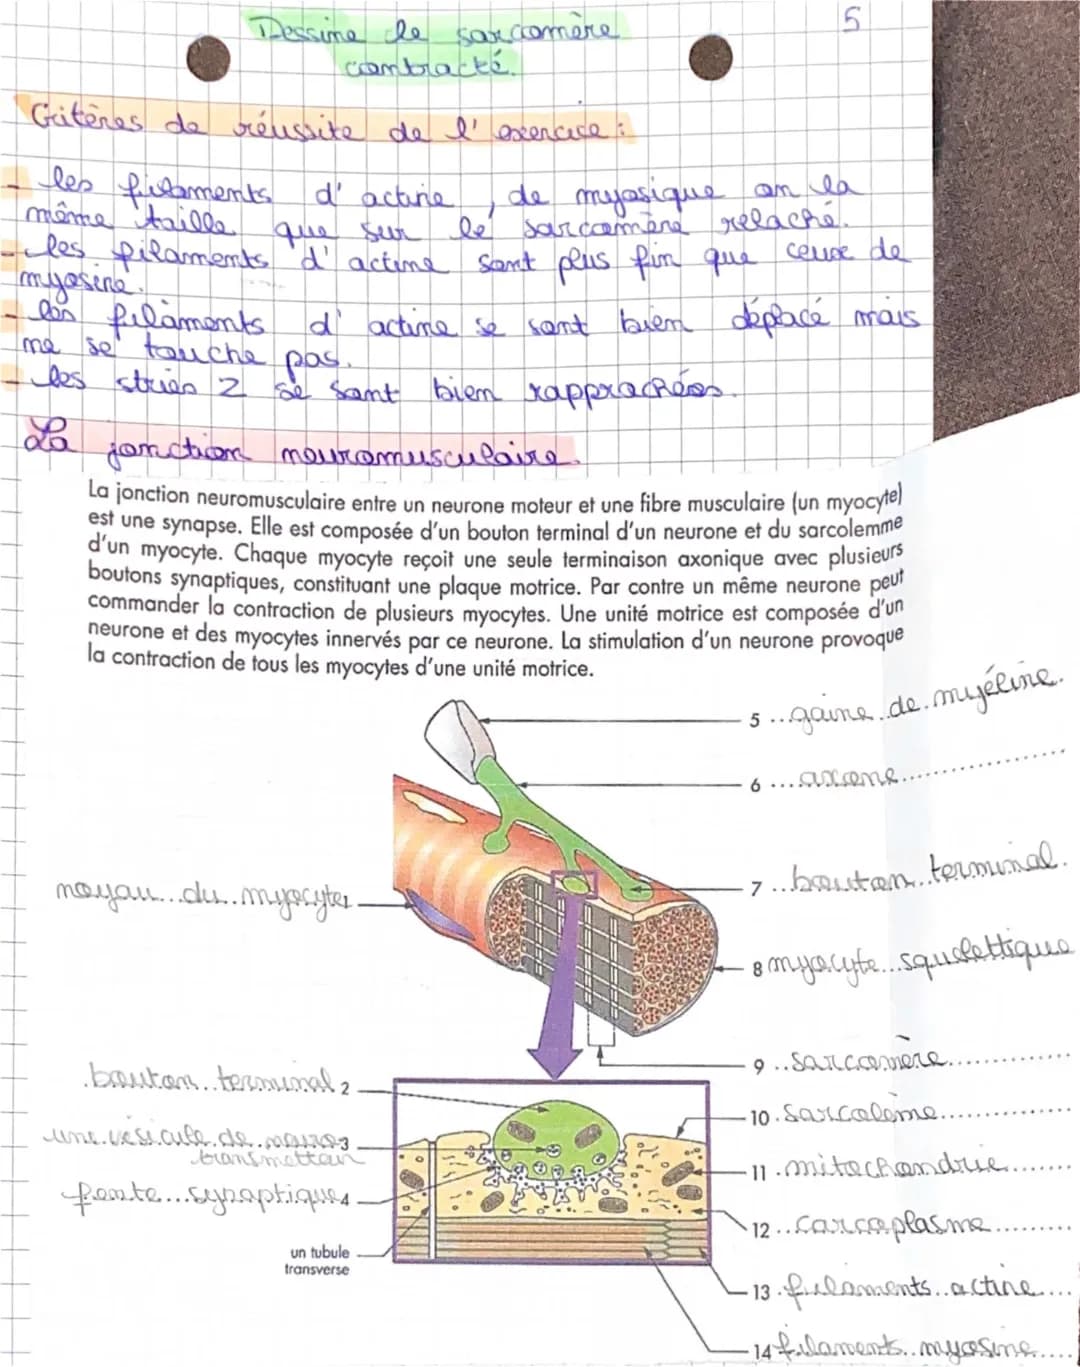 5
Dessine le sarcomère
contracté.
Critères de réussite de l'exercice :
- les filaments d'actine, de myosique on la
même taille que sur le sarcomère relaché.
- les filaments d'actine sont plus fin que ceux de
myosine.
- les filaments d'actine se sont bien déplacé mais
ne se touche pas.
- les stries Z se sont bien rapprochées.
La jonction neuromusculaire.
La jonction neuromusculaire entre un neurone moteur et une fibre musculaire (un myocyte)
est une synapse. Elle est composée d'un bouton terminal d'un neurone et du sarcolemme
d'un myocyte. Chaque myocyte reçoit une seule terminaison axonique avec plusieurs
boutons synaptiques, constituant une plaque motrice. Par contre un même neurone peut
commander la contraction de plusieurs myocytes. Une unité motrice est composée d'un
neurone et des myocytes innervés par ce neurone. La stimulation d'un neurone provoque
la contraction de tous les myocytes d'une unité motrice.
5 ..gaine..de.myéline.
6 ....axone..................
7 ..bouton..terminal.
noyau...du..myocyte1
8 myocyte...squelettique
9 ..sarcomère.............
.bouton..terminal 2
10 .sarcoleme..............
une.vésicule.de..neuro3
transmetteur
11 .mitochondrie.......
fente...synaptique4
12 ..carcoplasme..........
un tubule
transverse
13 .filaments..actine....
14 filaments..myosine....